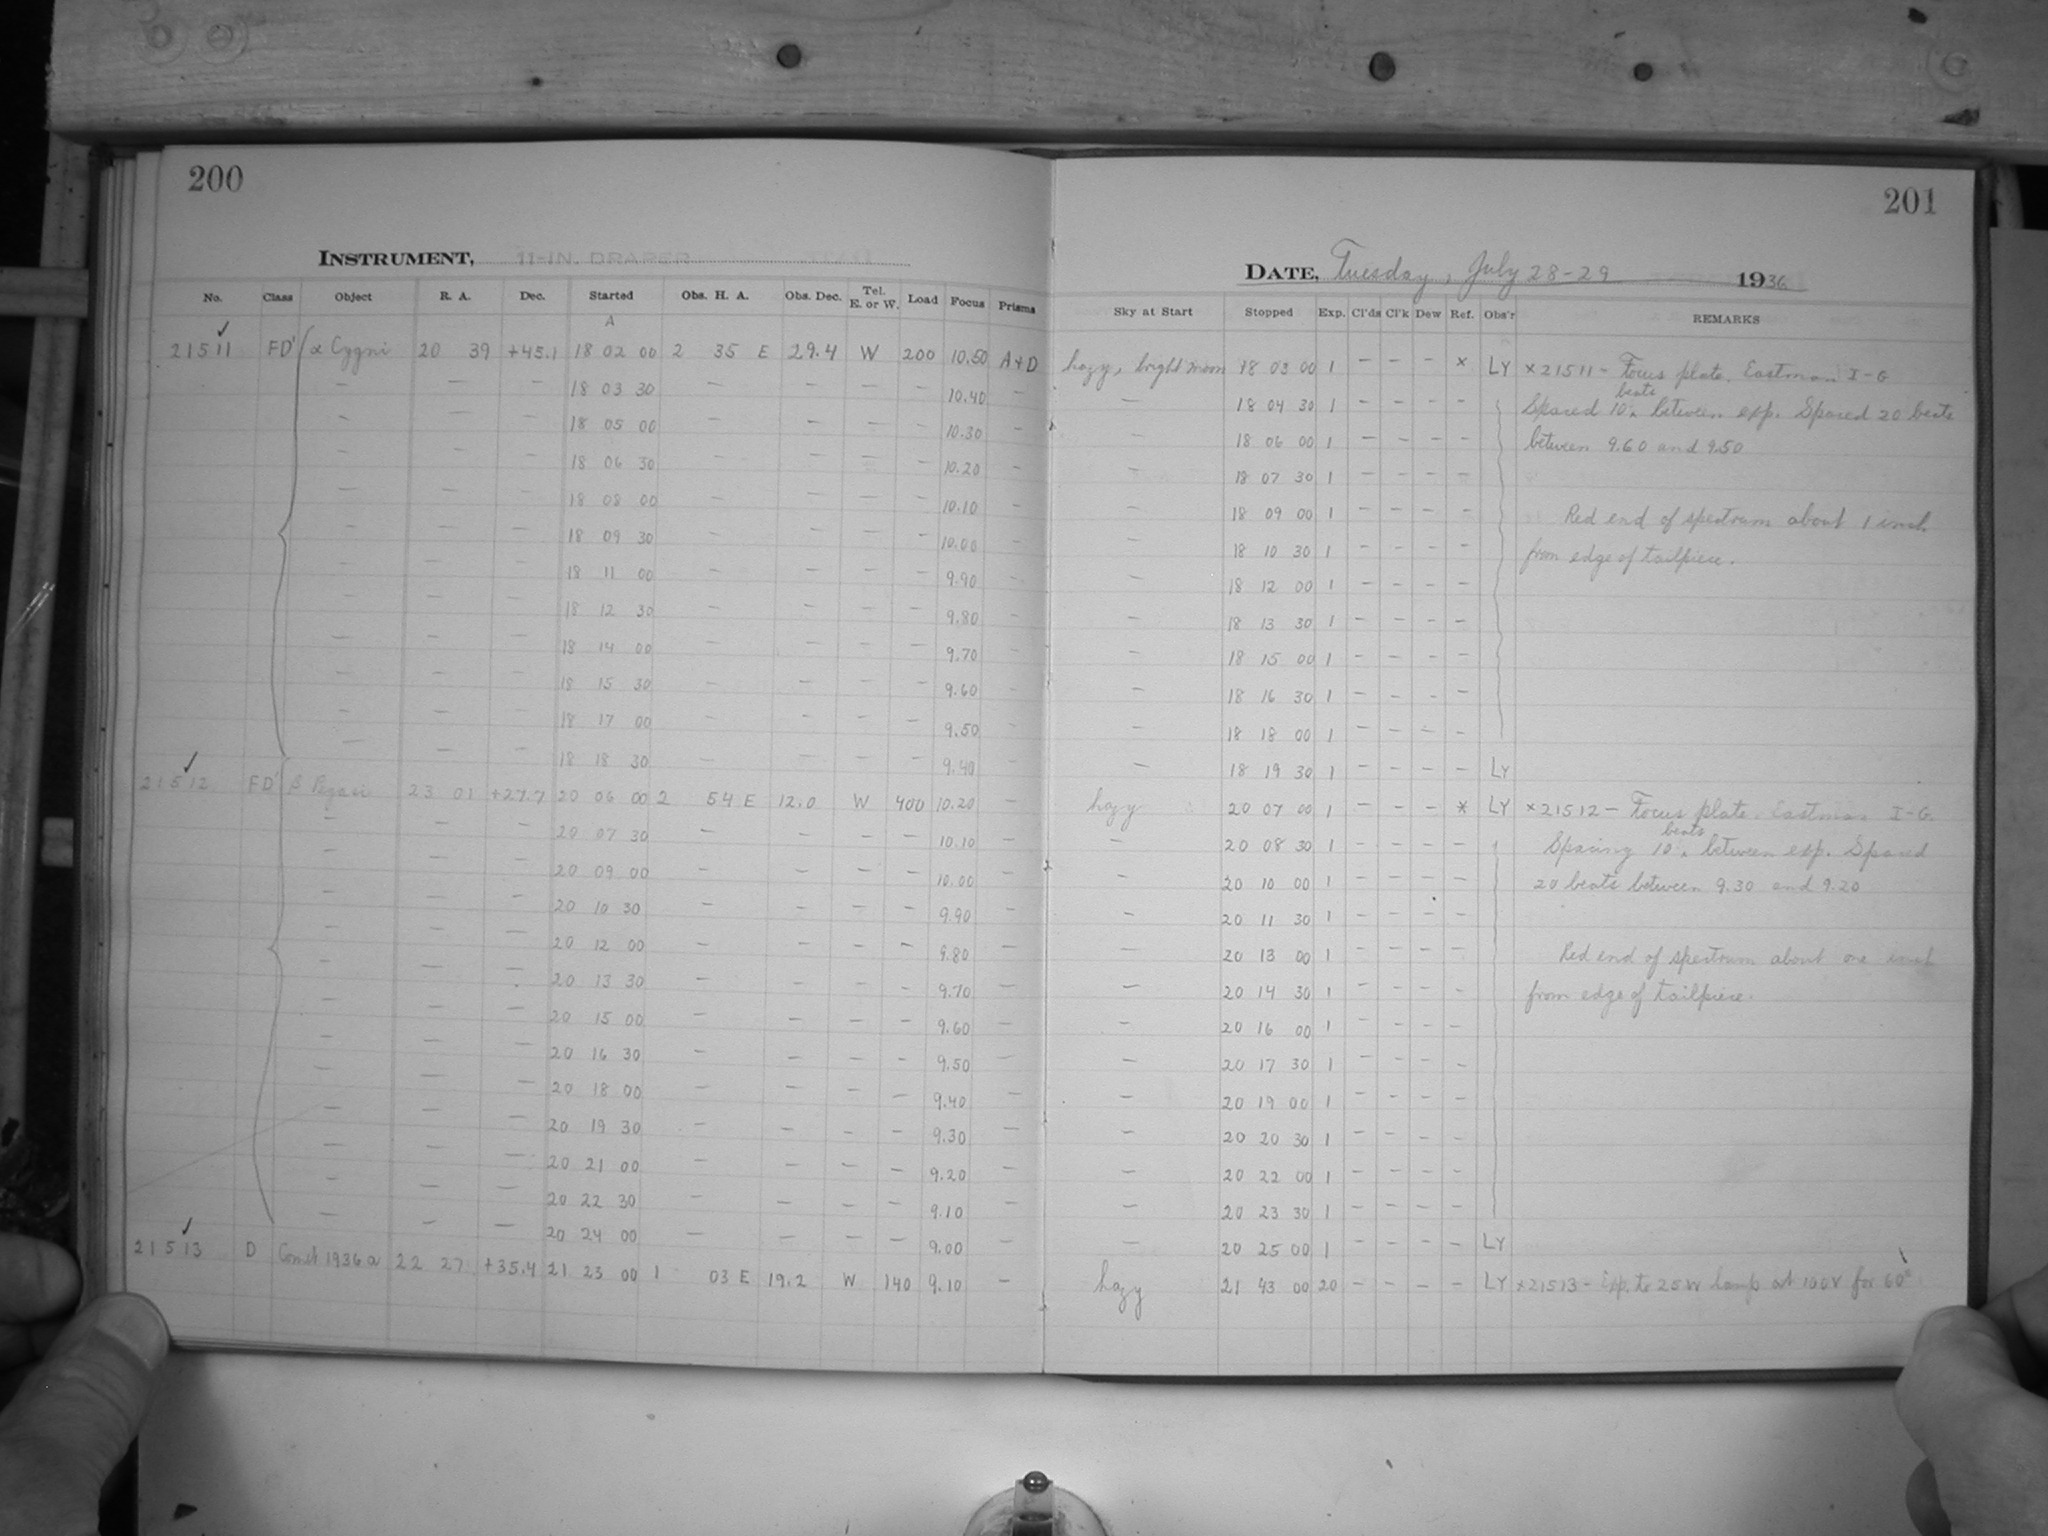 200
INSTRUMENT, 11-IN. DRAPER
No. Class Object R. A. Dec. Started Obs. H. A. Obs. Dec. Tel. E. or W. Load Focus Prisms
A
21511 FD' α Cygni 20 39 +45.1 18 02 00 2 35 E 29.4 W 200 10.50 A+D
— — — 18 03 30 — — — — 10.40 —
— — — 18 05 00 — — — — 10.30 —
— — — 18 06 30 — — — — 10.20 —
— — — 18 08 00 — — — — 10.10 —
— — — 18 09 30 — — — — 10.00 —
— — — 18 11 00 — — — — 9.90 —
— — — 18 12 30 — — — — 9.80 —
— — — 18 14 00 — — — — 9.70 —
— — — 18 15 30 — — — — 9.60 —
— — — 18 17 00 — — — — 9.50 —
— — — 18 18 30 — — — — 9.40 —
21512 FD' β Pegasi 23 01 +27.7 20 06 00 2 54 E 12.0 W 400 10.20 —
— — — 20 07 30 — — — — 10.10 —
— — — 20 09 00 — — — — 10.00 —
— — — 20 10 30 — — — — 9.90 —
— — — 20 12 00 — — — — 9.80 —
— — — 20 13 30 — — — — 9.70 —
— — — 20 15 00 — — — — 9.60 —
— — — 20 16 30 — — — — 9.50 —
— — — 20 18 00 — — — — 9.40 —
— — — 20 19 30 — — — — 9.30 —
— — — 20 21 00 — — — — 9.20 —
— — — 20 22 30 — — — — 9.10 —
— — — 20 24 00 — — — — 9.00 —
21513 D Comet 1936a 22 27 +35.4 21 23 00 1 03 E 19.2 W 140 9.10 —
201
DATE, Tuesday, July 28-29 1936
Sky at Start Stopped Exp. Cl'ds Cl'k Dew Ref. Obs'r REMARKS
hazy, bright moon 18 03 00 1 — — — × LY ×21511 - Focus plate. Eastman I-G
— 18 04 30 1 — — — — Spaced 10 beats between exp. Spaced 20 beats
— 18 06 00 1 — — — — between 9.60 and 9.50
— 18 07 30 1 — — — —
— 18 09 00 1 — — — — Red end of spectrum about 1 inch
— 18 10 30 1 — — — — from edge of tailpiece.
— 18 12 00 1 — — — —
— 18 13 30 1 — — — —
— 18 15 00 1 — — — —
— 18 16 30 1 — — — —
— 18 18 00 1 — — — —
— 18 19 30 1 — — — — LY
hazy 20 07 00 1 — — — × LY ×21512 - Focus plate. Eastman I-G.
— 20 08 30 1 — — — — Spacing 10 beats between exp. Spaced
— 20 10 00 1 — — — — 20 beats between 9.30 and 9.20
— 20 11 30 1 — — — —
— 20 13 00 1 — — — — Red end of spectrum about one inch
— 20 14 30 1 — — — — from edge of tailpiece.
— 20 16 00 1 — — — —
— 20 17 30 1 — — — —
— 20 19 00 1 — — — —
— 20 20 30 1 — — — —
— 20 22 00 1 — — — —
— 20 23 30 1 — — — —
— 20 25 00 1 — — — — LY
hazy 21 43 00 20 — — — — LY ×21513 - Exp. to 25W lamp at 100V for 60ˢ